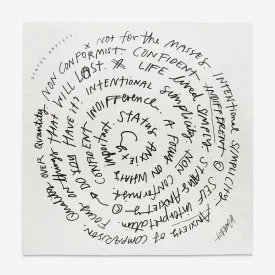 STATUS ANXIETY.
x NOT for the MASSES
INTENTIONAL SIMPLICITY
ANXIETY OF COMPARISON
Quality OVER Quantity.
NON CONFORMIST. CONFIDENT
INDEPENDENT @ SELF interpretation.
Focus on things THAT WILL LAST.
LIFE lived SIMPLY. STATUS ANXIETY @
DO YOU HAVE IT? INTENTIONAL
Simplicity NON CONFORMIST
CONFIDENT INDIFFERENCE.
A FOCUS ON WHAT'S
STATUS ANXIETY